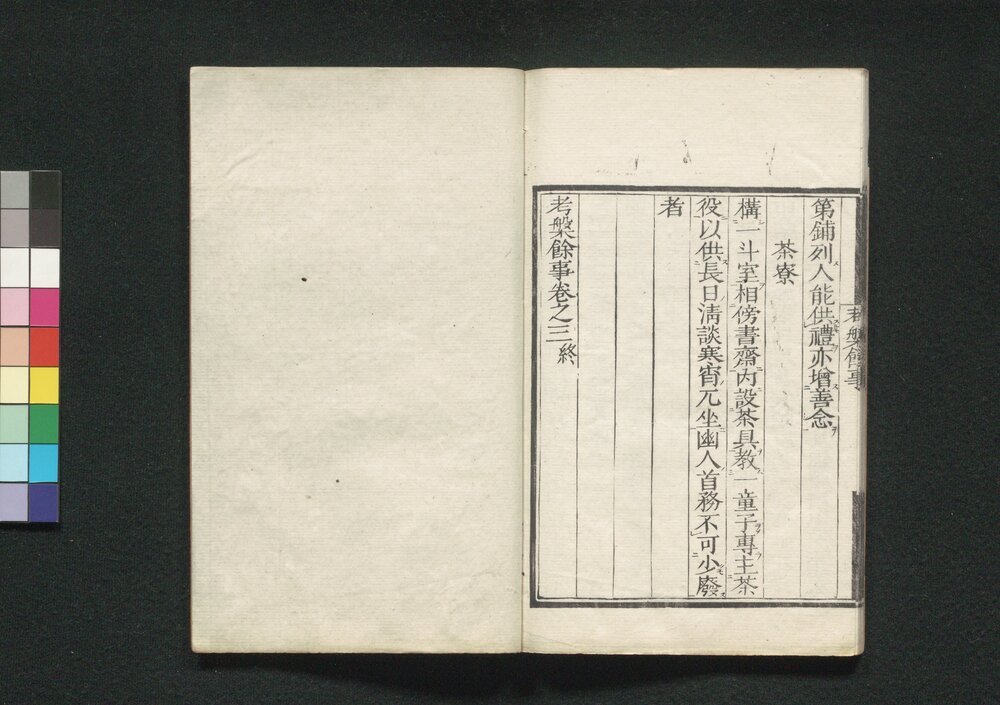 考槃餘事
第鋪列人能供禮亦增善念
茶寮
構一斗室相傍書齋內設茶具教一童子專主茶
役以供長日淸談寒宵兀坐幽人首務不可少廢
者
考槃餘事卷之三終